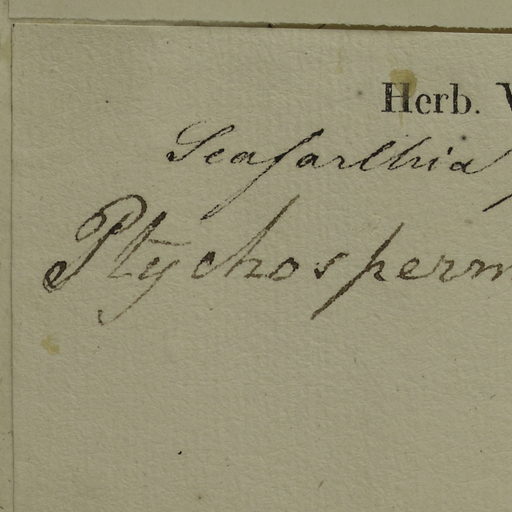 Herb. V
Seafarthia
Ptychosperm